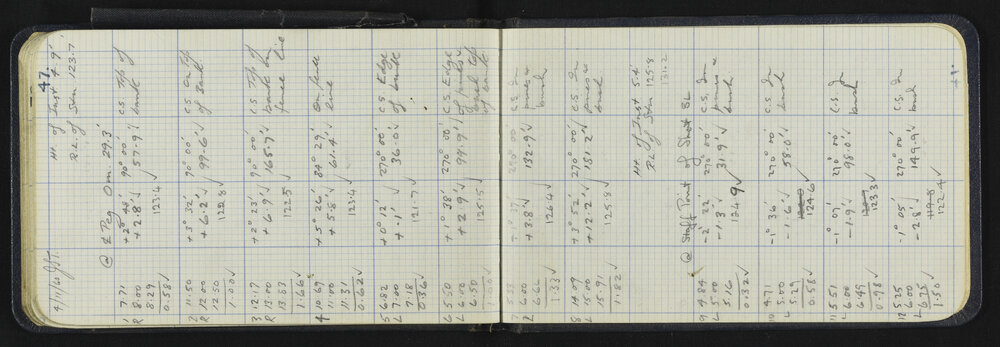 47.
4/11/60 Ht. of Inst 4.9'
R.L. of Stn 123.7
@ Peg Om. 29.3'
1 7.71 +2° 48' 90° 00' C.S. Top of
R 8.00 +2.8'√ 57.9'√ bank
8.29 123.4√
0.58√
2 11.50 +3° 32' 90° 00' C.S. On Top
R 12.00 +6.2'√ 99.6'√ of bank
12.50 122.8√
1.00√
3 12.17 +2° 23' 90° 00' C.S. Top of
R 13.00 +6.9'√ 165.7'√ bank on
13.83 122.5√ fence line
1.66√
4 10.69 +5° 26' 84° 29' On fence
R 11.00 +5.8'√ 61.4'√ line
11.31 123.4√
0.62√
5 6.82 +0° 12' 270° 00' C.S. Edge
L 7.00 +.1'√ 36.0'√ of bank
7.18 121.7√
0.36√
6 5.50 +1° 38' 270° 00' C.S. Edge
L 6.00 +2.9'√ 99.9'√ of pines &
6.50 125.5√ Break top
1.00√ of bank
7 5.33 +1° 37' 270° 00' C.S. In
L 6.00 +3.8'√ 132.9'√ pines &
6.66 126.4√ bush
1.33√
8 14.09 +3° 52' 270° 00' C.S. In
L 15.00 +12.2'√ 181.2'√ pines &
15.91 125.8√ bush
1.82√
Ht of Inst 5.4'
RL of Stn 125.8
131.2
@ Staff Point of Shot 8L
9 4.84 -2° 22' 270° 00' C.S. In
L 5.00 -1.3'√ 31.9'√ pines &
5.16 124.9√ bush
0.32√
10 4.71 -1° 36' 270° 00' C.S. In
L 5.00 -1.6'√ 58.0'√ bush
5.29 124.6√
0.58√
11 5.51 -1° 07' 270° 00' C.S. In
L 6.00 -1.9'√ 98.0'√ bush
6.49 123.3√
0.98√
12 5.25 -1° 05' 270° 00' C.S. In
L 6.00 -2.8'√ 149.9'√ bush
6.75 119.8
1.50√ 122.4√